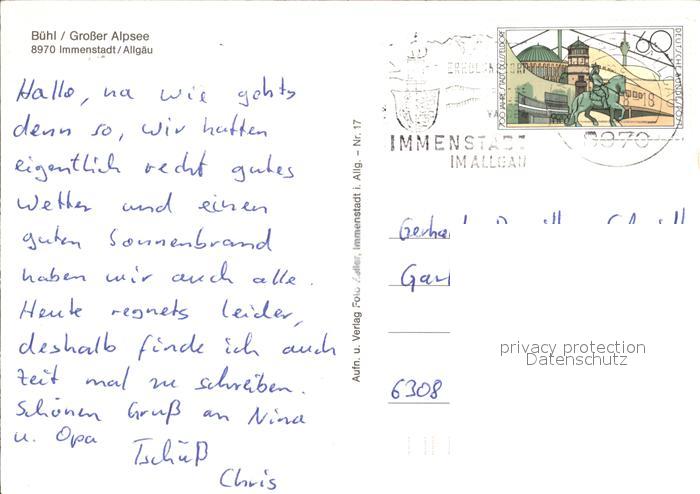 Bühl / Großer Alpsee
8970 Immenstadt/Allgäu
Hallo, na wie gehts
denn so, wir hatten
eigentlich recht gutes
Wetter und einen
guten Sonnenbrand
haben wir auch alle.
Heute regnets leider,
deshalb finde ich auch
Zeit mal zu schreiben.
Schönen Gruß an Nina
u. Opa
Tschüß
Chris
Aufn. u. Verlag Foto Heller, Immenstadt i. Allg. – Nr. 17
IMMENSTADT
IM ALLGÄU
8970
700 JAHRE STADT DÜSSELDORF
60
DEUTSCHE BUNDESPOST
6308
privacy protection
Datenschutz